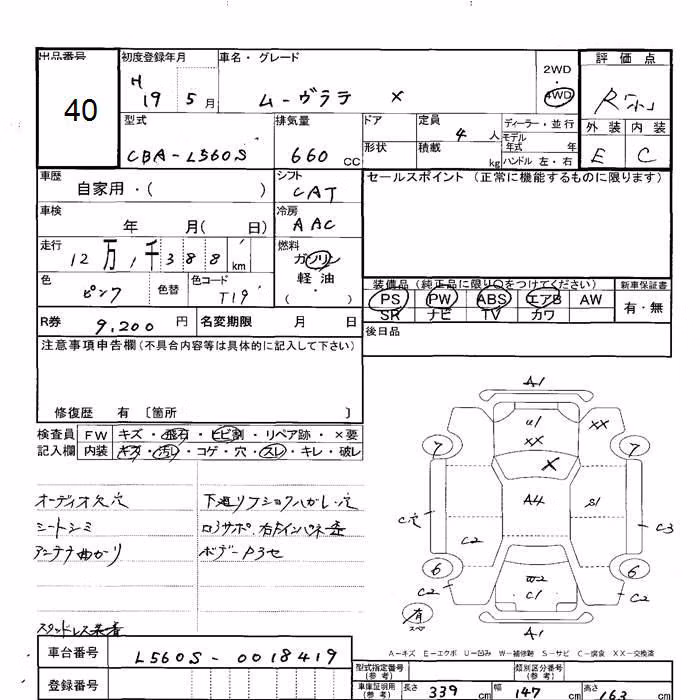 出品番号
40
初度登録年月
H 19 5 月
車名・グレード
ムーヴラテ X
2WD
4WD
評価点
外装 内装
E C
型式
CBA-L560S
排気量
660 CC
ドア
形状
定員
4 人
積載
kg
ディーラー・並行
モデル年式 年
ハンドル 左・右
車歴
自家用・( )
車検
年 月( 日)
走行
12 万 1 千 388 km
色
ピンク
色替
色コード
T19
シフト
CAT
冷房
AAC
燃料
ガソリン
軽油
( ・ )
セールスポイント (正常に機能するものに限ります)
装備品 (純正品に限り○をつけてください)
PS PW ABS エアB AW
SR ナビ TV カワ
新車保証書
有・無
後日品
R券 9,200 円
名変期限 月 日
注意事項申告欄 (不具合内容等は具体的に記入して下さい)
修復歴 有 〔箇所 〕
検査員
記入欄
FW キズ・飛石・ヒビ割・リペア跡・×要
内装 キズ・汚レ・コゲ・穴・スレ・キレ・破レ
オーディオ欠穴
シートシミ
アンテナ曲がり
スタッドレス装着
A1
U1
XX
XX
X
7
7
A4
S1
C穴
C2
C3
6
6
C2
C2
W2
C1
有
スペア
A1
A-キズ E-エクボ U-凹み W-補修跡 S-サビ C-腐食 XX-交換済
車台番号
L560S-0018419
登録番号
型式指定番号
(参考)
類別区分番号
(参考)
車庫証明用
(参考)
長さ 339 cm
幅 147 cm
高さ 163 cm